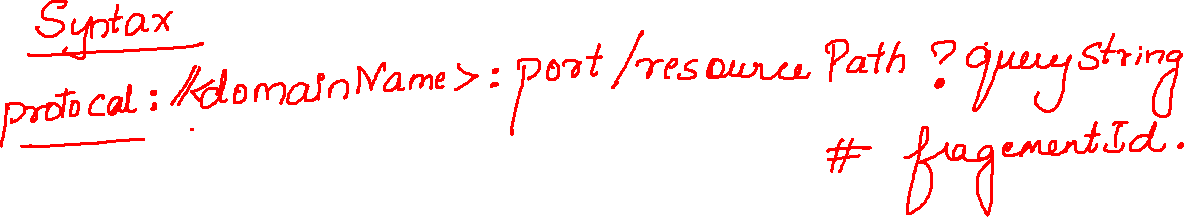 Syntax
protocal://<domainName>:port/resource Path?queryString
# fragementId.